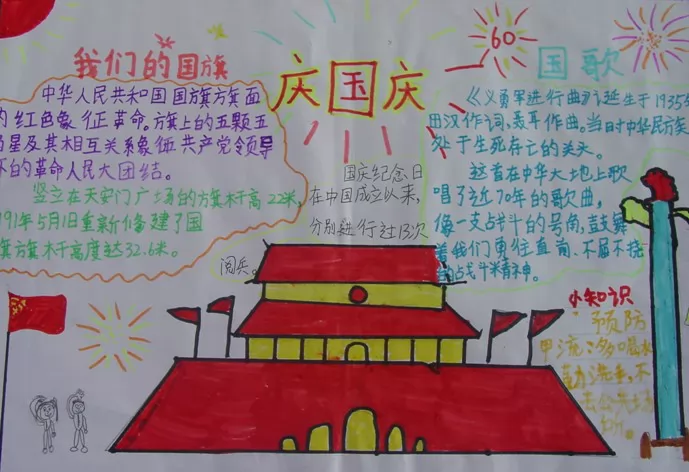 我们的国旗
中华人民共和国国旗旗面
的红色象征革命。旗上的五颗五
角星及其相互关系象征共产党领导
下的革命人民大团结。
竖立在天安门广场的方旗杆高22米,
991年5月1日重新修建了国
旗方旗杆高度达32.6米。
庆国庆
国庆纪念日
在中国成立以来,
分别进行过13次
阅兵。
60
国歌
《义勇军进行曲》诞生于1935年
田汉作词,聂耳作曲。当日时中华民族
处于生死存亡的关头。
这首在中华大地上歌
唱了近70年的歌曲,
像一支战斗的号角,鼓舞
着我们勇往直前、不屈不挠
的战斗精神。
小知识
预防
甲流:多喝水
勤洗手,不
去公共场
所。